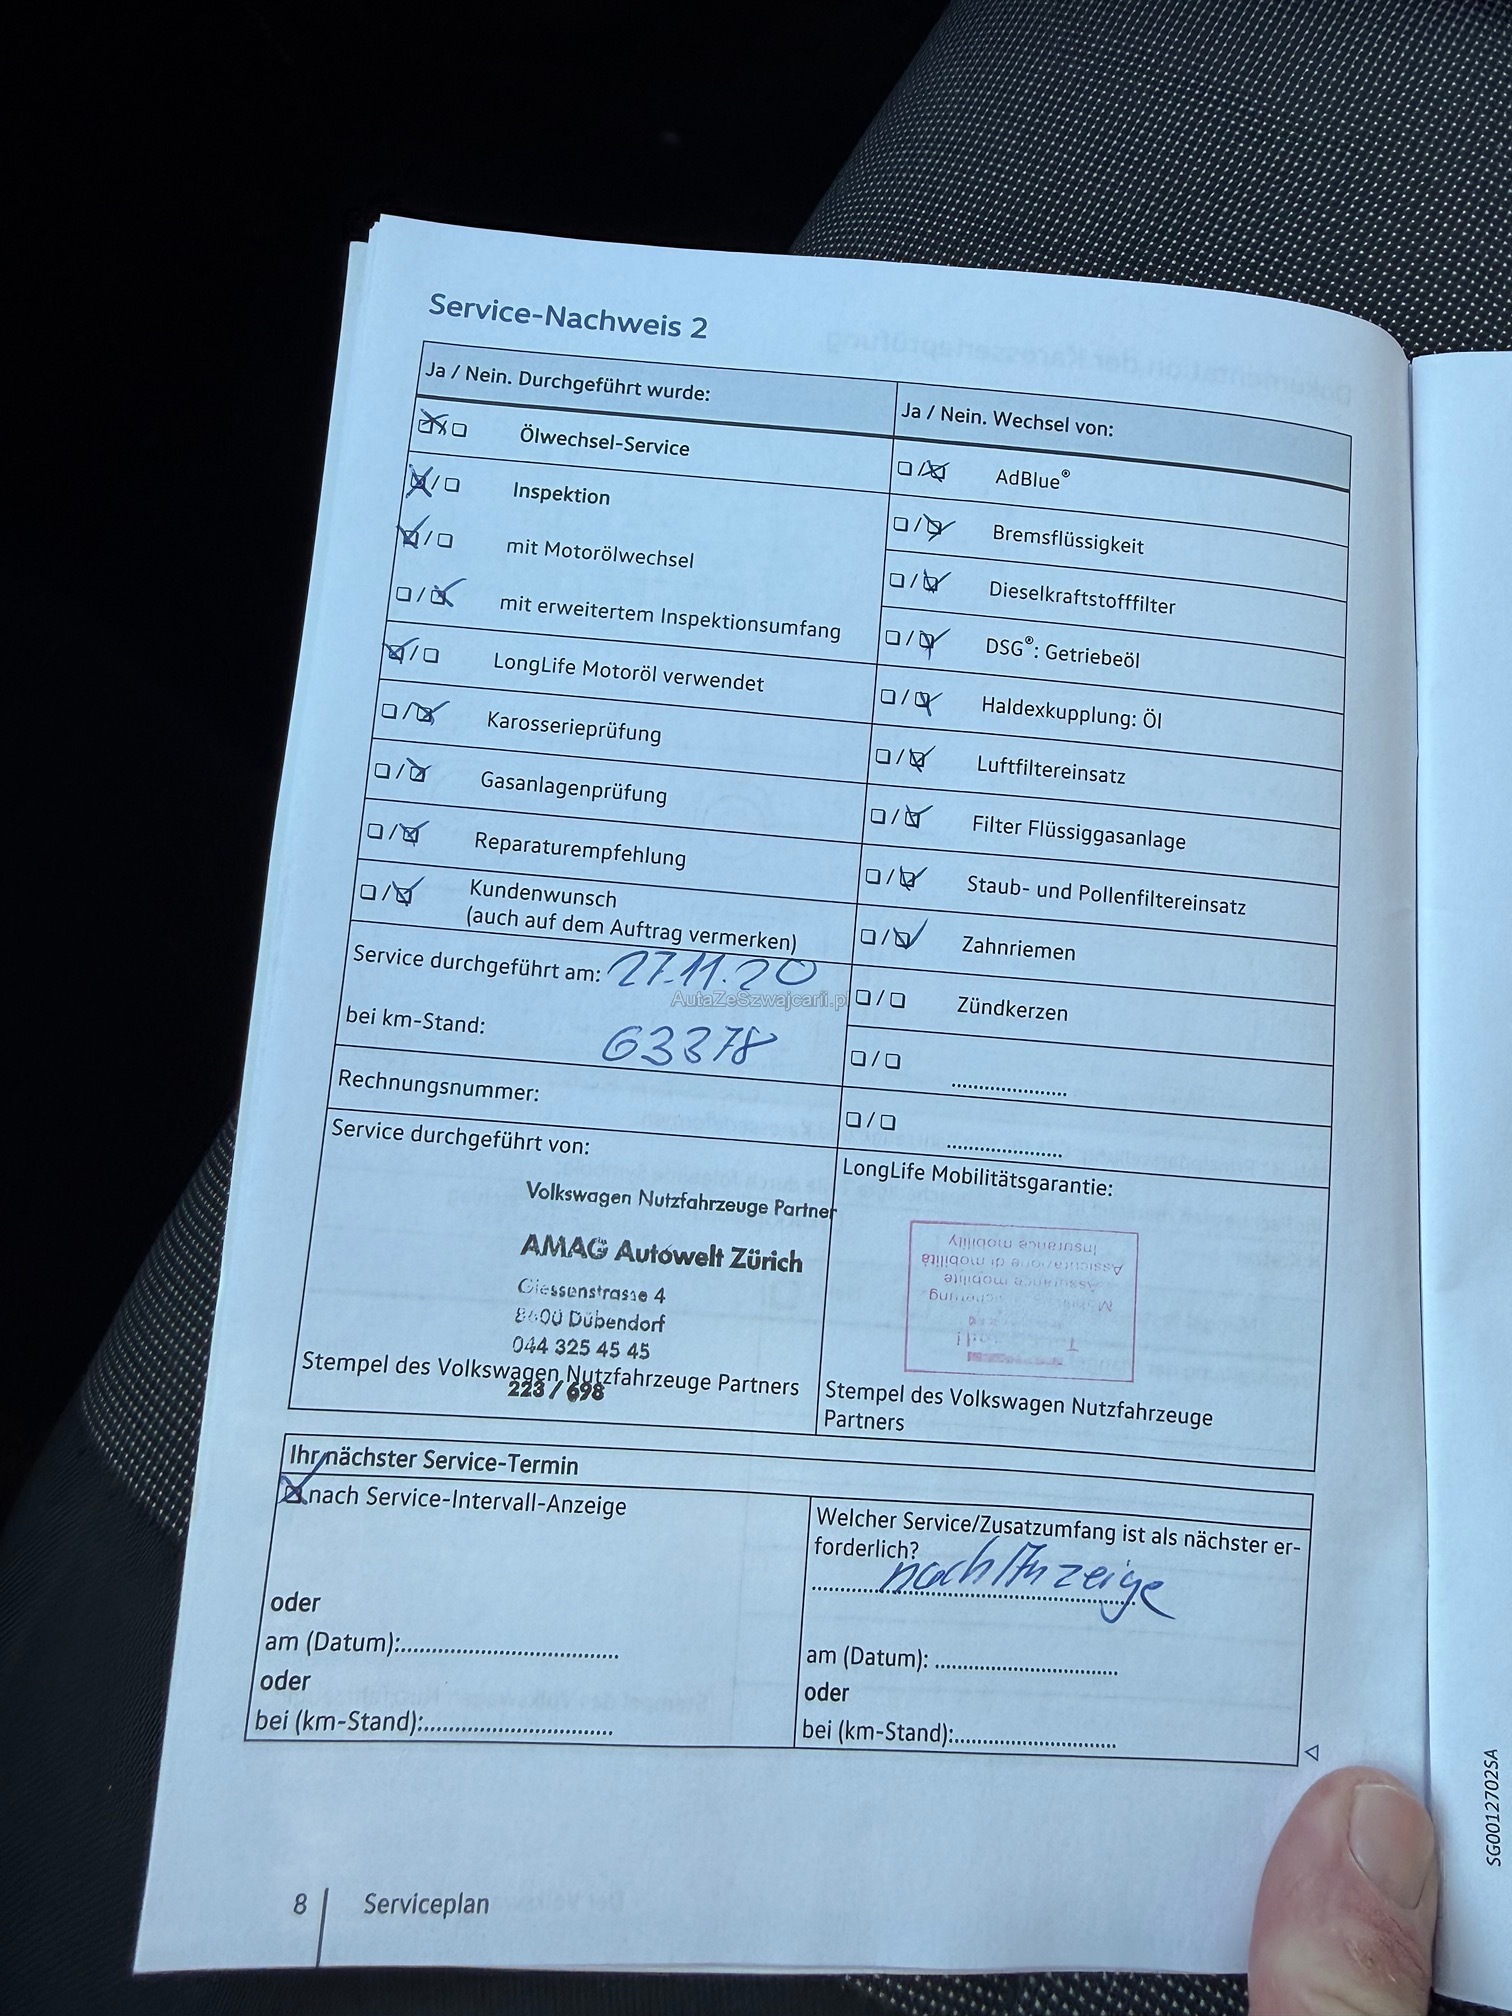 Service-Nachweis 2
Ja / Nein. Durchgeführt wurde:
Ölwechsel-Service
Inspektion
mit Motorölwechsel
mit erweitertem Inspektionsumfang
LongLife Motoröl verwendet
Karosserieprüfung
Gasanlagenprüfung
Reparaturempfehlung
Kundenwunsch
(auch auf dem Auftrag vermerken)
Service durchgeführt am: 27.11.20
AutaZeSzwajcarii.pl
bei km-Stand: 63378
Rechnungsnummer:
Service durchgeführt von:
Volkswagen Nutzfahrzeuge Partner
AMAG Autowelt Zürich
Giessenstrasse 4
8600 Dübendorf
044 325 45 45
Stempel des Volkswagen Nutzfahrzeuge Partners
223 / 698
Ja / Nein. Wechsel von:
AdBlue®
Bremsflüssigkeit
Dieselkraftstofffilter
DSG®: Getriebeöl
Haldexkupplung: Öl
Luftfiltereinsatz
Filter Flüssiggasanlage
Staub- und Pollenfiltereinsatz
Zahnriemen
Zündkerzen
LongLife Mobilitätsgarantie:
Insurance mobility
Assicurazione di mobilità
Assurance mobilité
Stempel des Volkswagen Nutzfahrzeuge
Partners
Ihr nächster Service-Termin
nach Service-Intervall-Anzeige
oder
am (Datum):
oder
bei (km-Stand):
Welcher Service/Zusatzumfang ist als nächster er-
forderlich?
nach Anzeige
am (Datum):
oder
bei (km-Stand):
8 Serviceplan
SG0012702SA